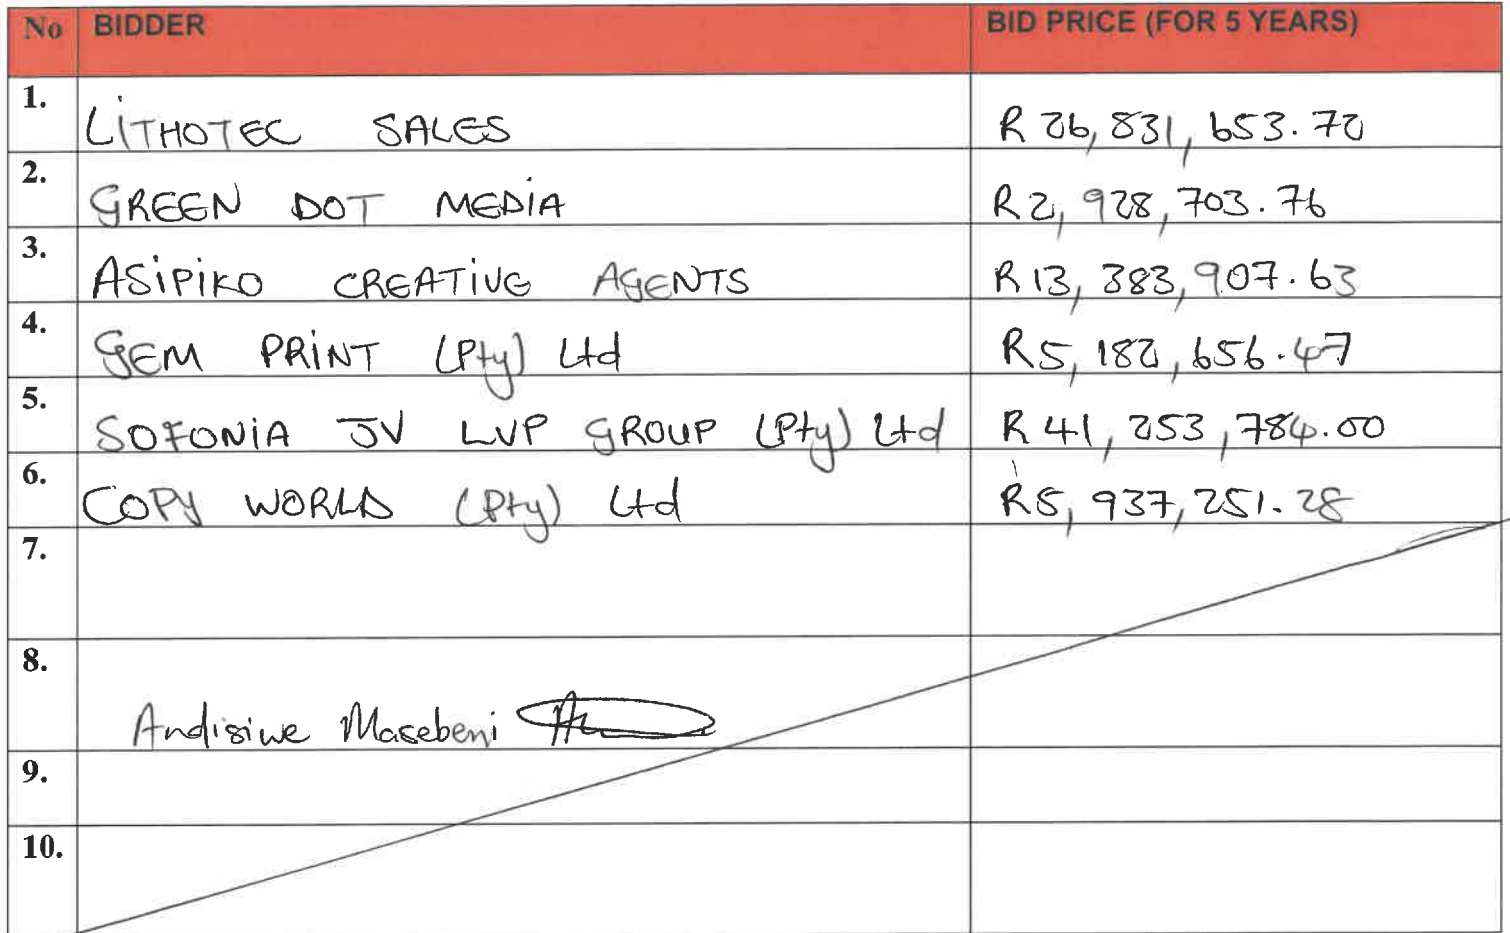 No BIDDER BID PRICE (FOR 5 YEARS)
1. LITHOTEC SALES R 26,831,653.72
2. GREEN DOT MEDIA R2,928,703.76
3. ASIPIKO CREATIVE AGENTS R13,383,907.63
4. GEM PRINT (Pty) Ltd R5,182,656.47
5. SOFONIA JV LVP GROUP (Pty) Ltd R 41,253,784.00
6. COPY WORLD (Pty) Ltd R5,937,251.28
7.
8.
Andisiwe Macebeni
9.
10.